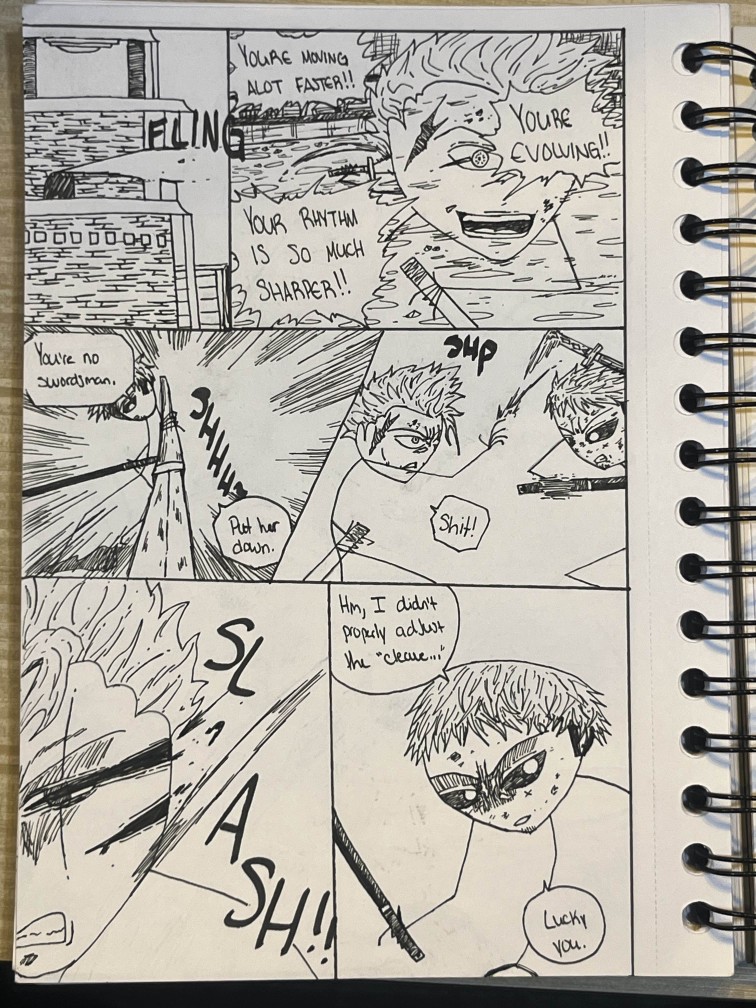 FLING
YOURE MOVING
ALOT FASTER!!
YOURE
EVOLVING!!
YOUR RHYTHM
IS SO MUCH
SHARPER!!
You're no
swordsman.
SHHHH
Put her
down.
SHP
Shit!
SL
A
SH!!
Hm, I didn't
properly adjust
the "cleave..."
Lucky
you.